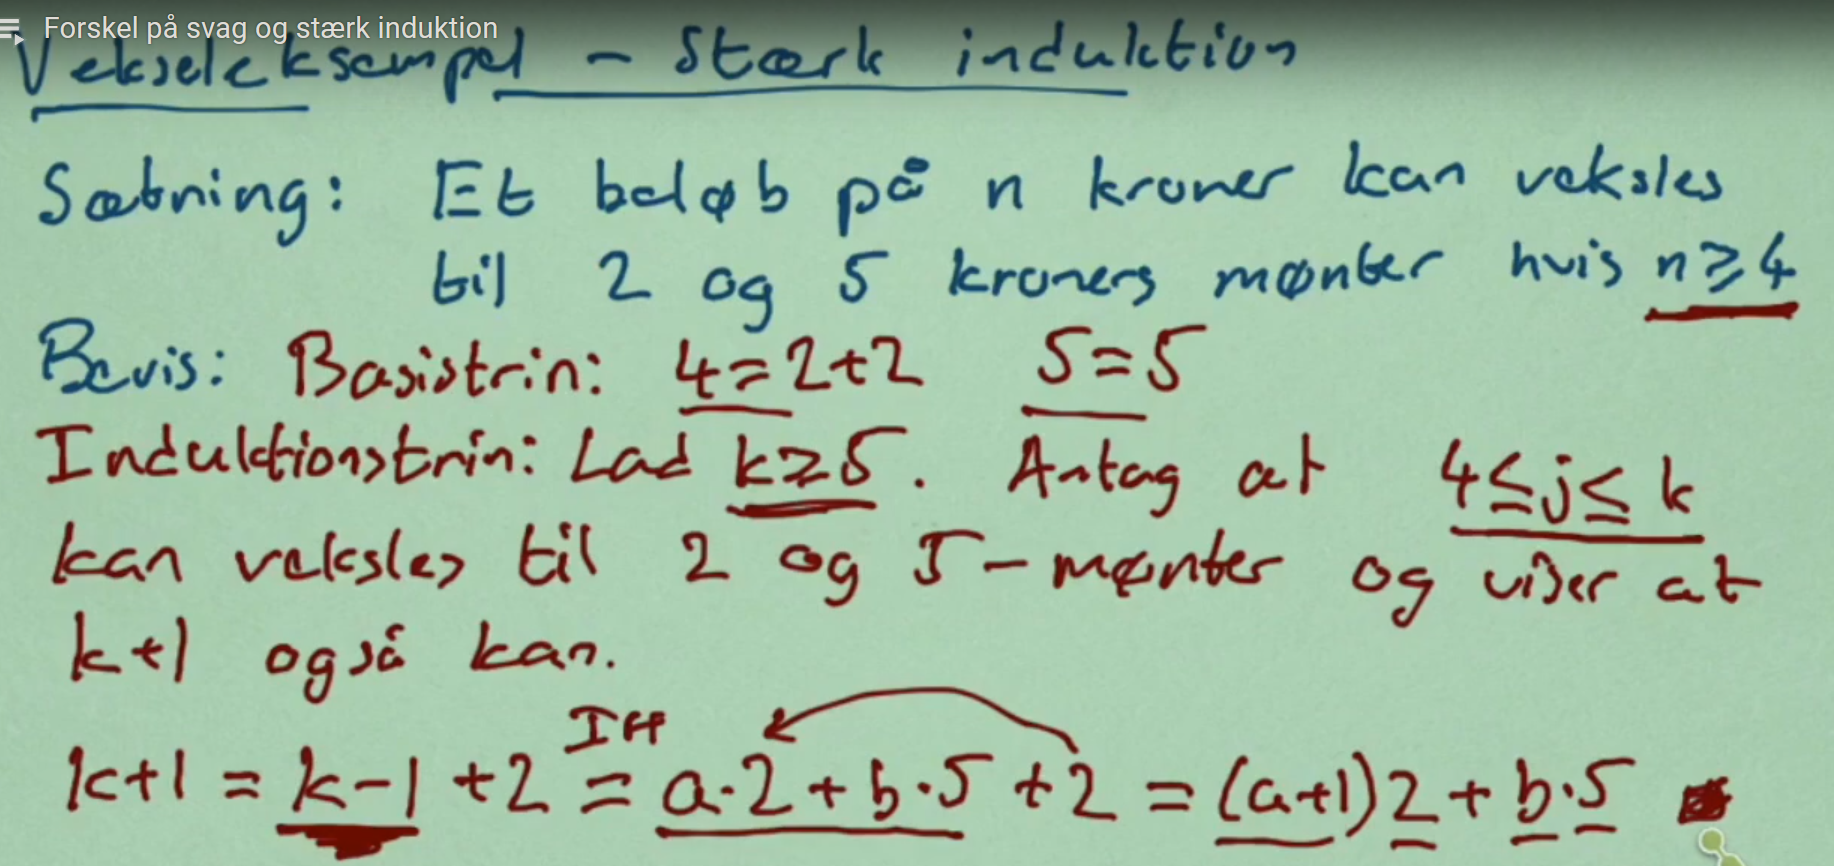 Forskel på svag og stærk induktion
Vekseleksempel - Stærk induktion
Sætning: Et beløb på n kroner kan veksles
til 2 og 5 kroners mønter hvis n ≥ 4
Bevis: Basistrin: 4 = 2+2 5 = 5
Induktionstrin: Lad k ≥ 5. Antag at 4 ≤ j ≤ k
kan veksles til 2 og 5 - mønter og viser at
k+1 også kan.
IH
k+1 = k-1 +2 = a·2 + b·5 +2 = (a+1)2 + b·5